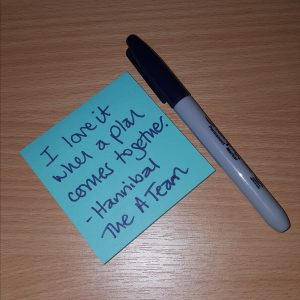 I love it
when a plan
comes together.
- Hannibal
The A Team